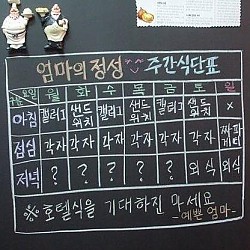 엄마의 정성 주간식단표
구분 요일 월 화 수 목 금 토 일
아침 캘러그 샌드위치 캘러그 샌드위치 캘러그 샌드위치 ×
점심 각자 각자 각자 각자 각자 각자 짜파게티
저녁 ? ? ? ? ? 외식 외식
※ 호텔식을 기대하진 마세요
-예쁜 엄마-